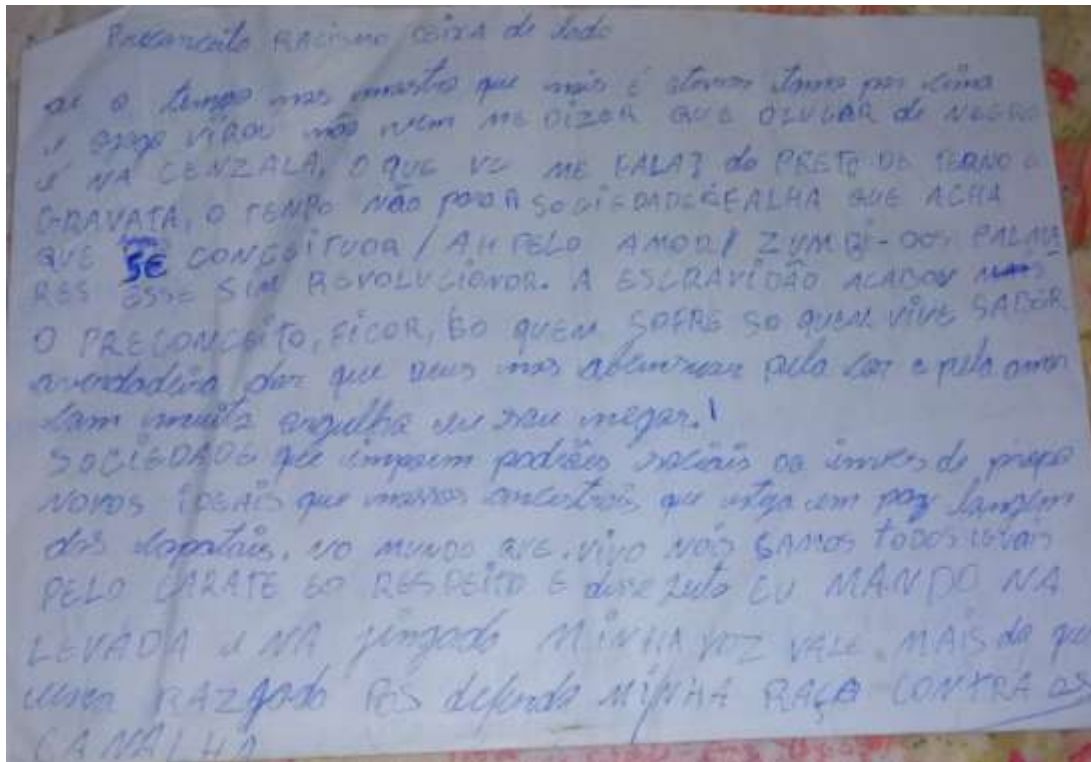 Preconceito RACISMO DEIXA de lado
o tempo nos mostra que nois é storm tamo por cima
o jogo VIROU não vem ME DIZER QUE O LUGAR de NEGRO
é NA CENZALA, O QUE VC ME FALA? do PRETO DE TERNO E
GRAVATA, O TEMPO NÃO PARA A SOCIEDADE É FALHA QUE ACHA
QUE SE CONCEITUOR / AH PELO AMOR / ZUMBI-DOS PALMA
RES ESSE SIM REVOLUCIONOR. A ESCRAVIDÃO ACABOU MAS
O PRECONCEITO, FICOR, SO QUEM SOFRE SO QUEM VIVE SABER
averdadeira dor que deus nos pela cor e pelo amor
com muito orgulho eu sou negor.!
SOCIEDADE que impoem padrões sociais ao inves de propo
NOVOS IDEAIS que nossos ancestrais que esteja em paz longem
dos capatais. NO MUNDO QUE VIVO NOS SAMOS TODOS IGUAIS
PELO CARATE EO RESPEITO E EU MANDO NA
LEVADA e NA jingado MINHA VOZ VALE MAIS do que
uma RAZgada POS defendo MINHA RAÇA CONTRA OS
CANALHA